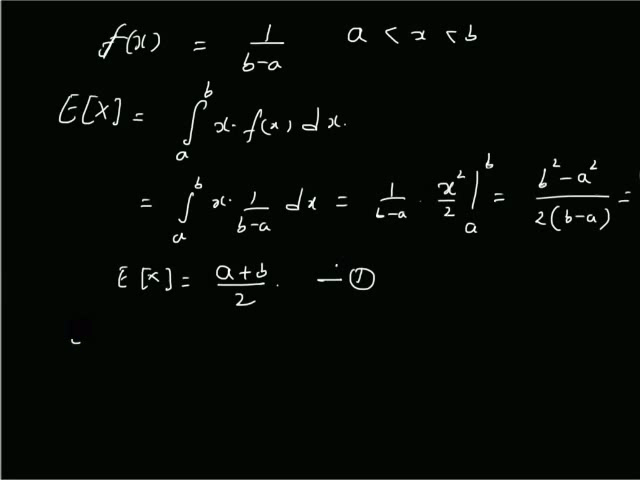 f(x) = 1/(b-a) a < x < b
E[X] = ∫_a^b x · f(x) dx.
= ∫_a^b x · 1/(b-a) dx = 1/(b-a) · x²/2 |_a^b = (b² - a²)/(2(b-a)) =
E[X] = (a+b)/2 . — ①